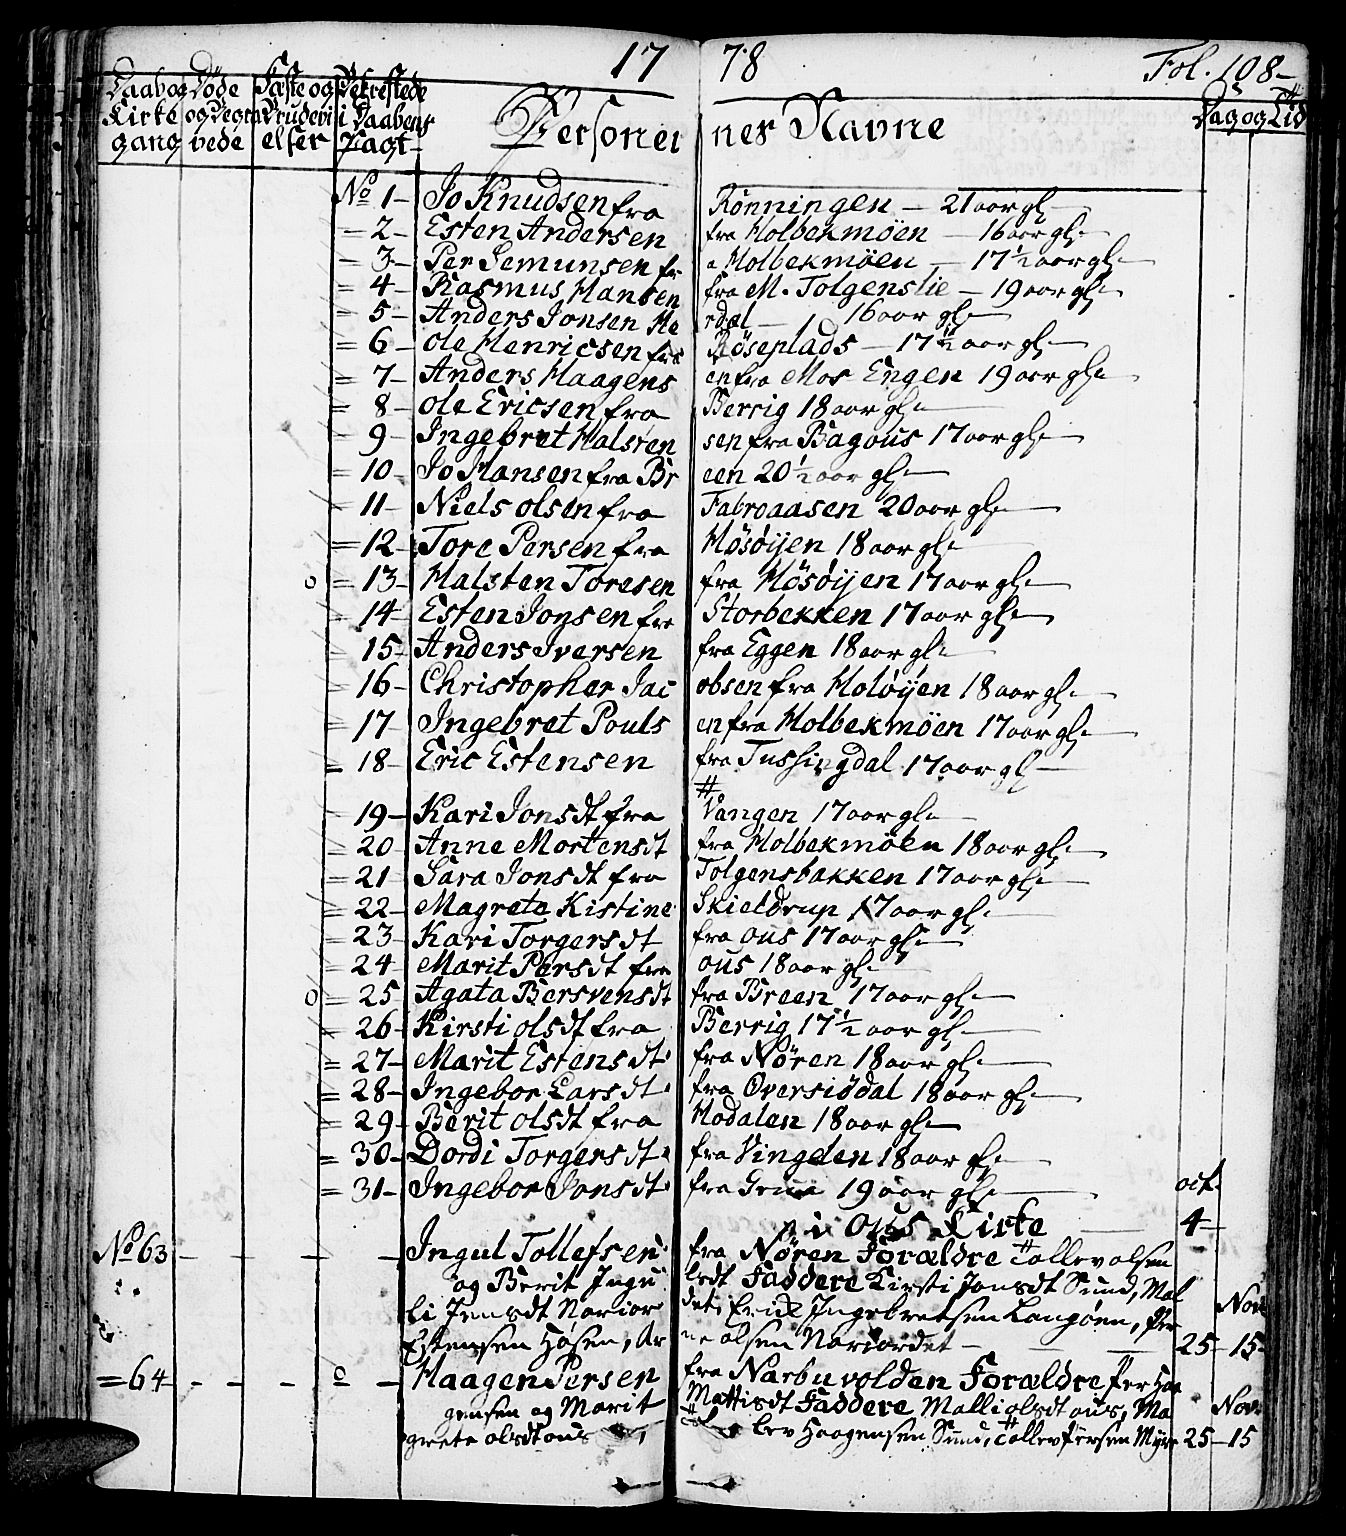 17 78 Fol. 108-
Daab og Døde Fæste og Bekreftede
Kirke og Begra Brudevi i Daabens Dag og Tid
gang vede elser Pagt Personer nes Navne
No 1- Jo Knudsen fra Rønningen - 21 aar gl.
= 2- Esten Andersen fra Holbekmöen - 16 aar gl.
= 3- Per Semunsen fr a Holbekmöen - 17 1/2 aar gl.
= 4- Rasmus Hansen fra M. Tolgenslie - 19 aar gl.
= 5- Anders Jonsen He rdal - 16 aar gl.
= 6- Ole Henricsen fra Røseplads - 17 1/2 aar gl.
= 7- Anders Haagens en fra Mos Engen 19 aar gl.
= 8- Ole Ericsen fra Berrig 18 aar gl.
= 9- Ingebret Halsten sen fra Bagous 17 aar gl.
= 10- Jo Hansen fra Br een 20 1/2 aar gl.
= 11- Niels Olsen fra Fabroaasen 20 aar gl.
= 12- Tore Persen fra Hösöijen 18 aar gl.
o = 13- Halsten Toresen fra Hösöijen 17 aar gl.
= 14- Esten Jonsen fra Storbekken 17 aar gl.
= 15- Anders Iversen fra Eggen 18 aar gl.
= 16- Christopher Jac obsen fra Holöijen 18 aar gl.
= 17- Ingebret Pouls en fra Holbekmöen 17 aar gl.
= 18- Eric Estensen fra Tussingdal 17 aar gl.
= 19- Kari Jonsdt fra Vangen 17 aar gl.
= 20- Anne Mortensdt fra Holbekmöen 18 aar gl.
= 21- Sara Jonsdt fra Tolgensbakken 17 aar gl.
= 22- Magrete Kistine Skieldrup 17 aar gl.
= 23- Kari Torgersdt fra Ous 17 aar gl.
= 24- Marit Persdt fra Ous 18 aar gl.
o = 25- Agata Bersvensdt fra Breen 17 aar gl.
= 26- Kirsti Olsdt fra Berrig 17 1/2 aar gl.
= 27- Marit Estensdt. fra Nören 18 aar gl.
= 28- Ingebor Larsdt. fra Oversiödal 18 aar gl.
= 29- Berit Olsdt fra Hodalen 18 aar gl.
= 30- Dordi Torgersdt. fra Vingelen 18 aar gl.
= 31- Ingebor Jonsdt. fra 19 aar gl. oct.
i Ous Kirke 4-
No 63 - - - - Ingul Tollefsen fra Nören Forældre Tollev Olsen
og Berit Ingu lsdt Faddere Kirsti Jonsdt Sund, Mal Nov
li Jensdt Narior det, Erick Ingebretsen Langöen, Per
Estensen Hosen, Ar ne Olsen Nariordet - 25- 15-
= 64 - - - o - Haagen Persen fra Narbuvolden Forældre Per Haa
gensen og Marit Mattisdt Faddere Malli Olsdt Ous, Ma Nov.
grete Olsdt Ous, lev Haagensen Sund, Tollev Persen Myre 25- 15